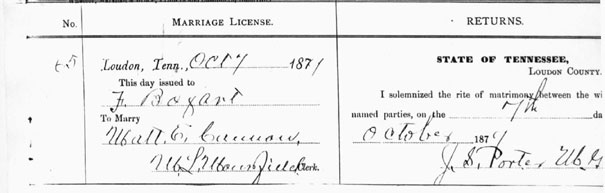 No.
MARRIAGE LICENSE.
RETURNS.
Loudon, Tenn., Oct 7 1871
This day issued to
F. Bogart
To Marry
Matt. E. Cannon,
Clerk.
STATE OF TENNESSEE,
LOUDON COUNTY.
I solemnized the rite of matrimony between the wi
named parties, on the 7th da
October 187
J. S. Porter M. G